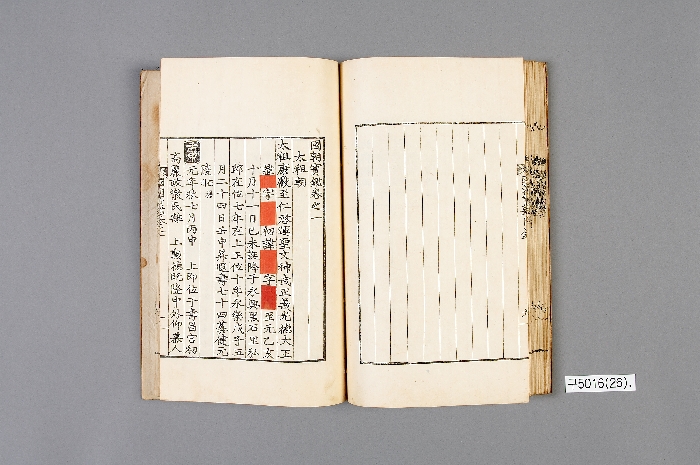 國朝寶鑑卷之一
太祖朝
太祖康獻至仁啓運聖文神武正義光德大王
諱 字 初諱 字 至元乙亥
十月十一日己未誕降于永興黑石里私
邸在位七年在上王位十年永樂戊子五
月二十四日壬申薨 壽七十四葬健元
陵
元年秋七月丙申 上卽位于壽昌宮初
高麗政散民離 上勳德旣隆中外仰 人
고5016(26).